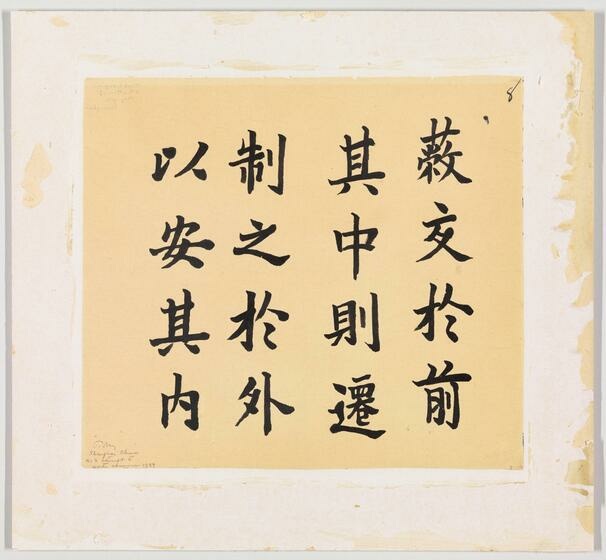 8
蔽交於前
其中則遷
制之於外
以安其内